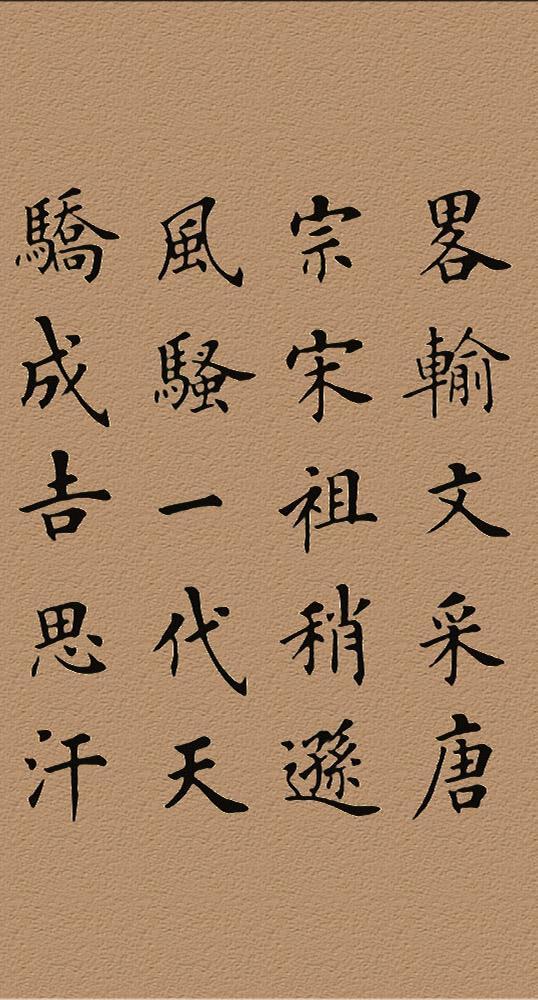 畧輸文采唐
宗宋祖稍遜
風騷一代天
驕成吉思汗